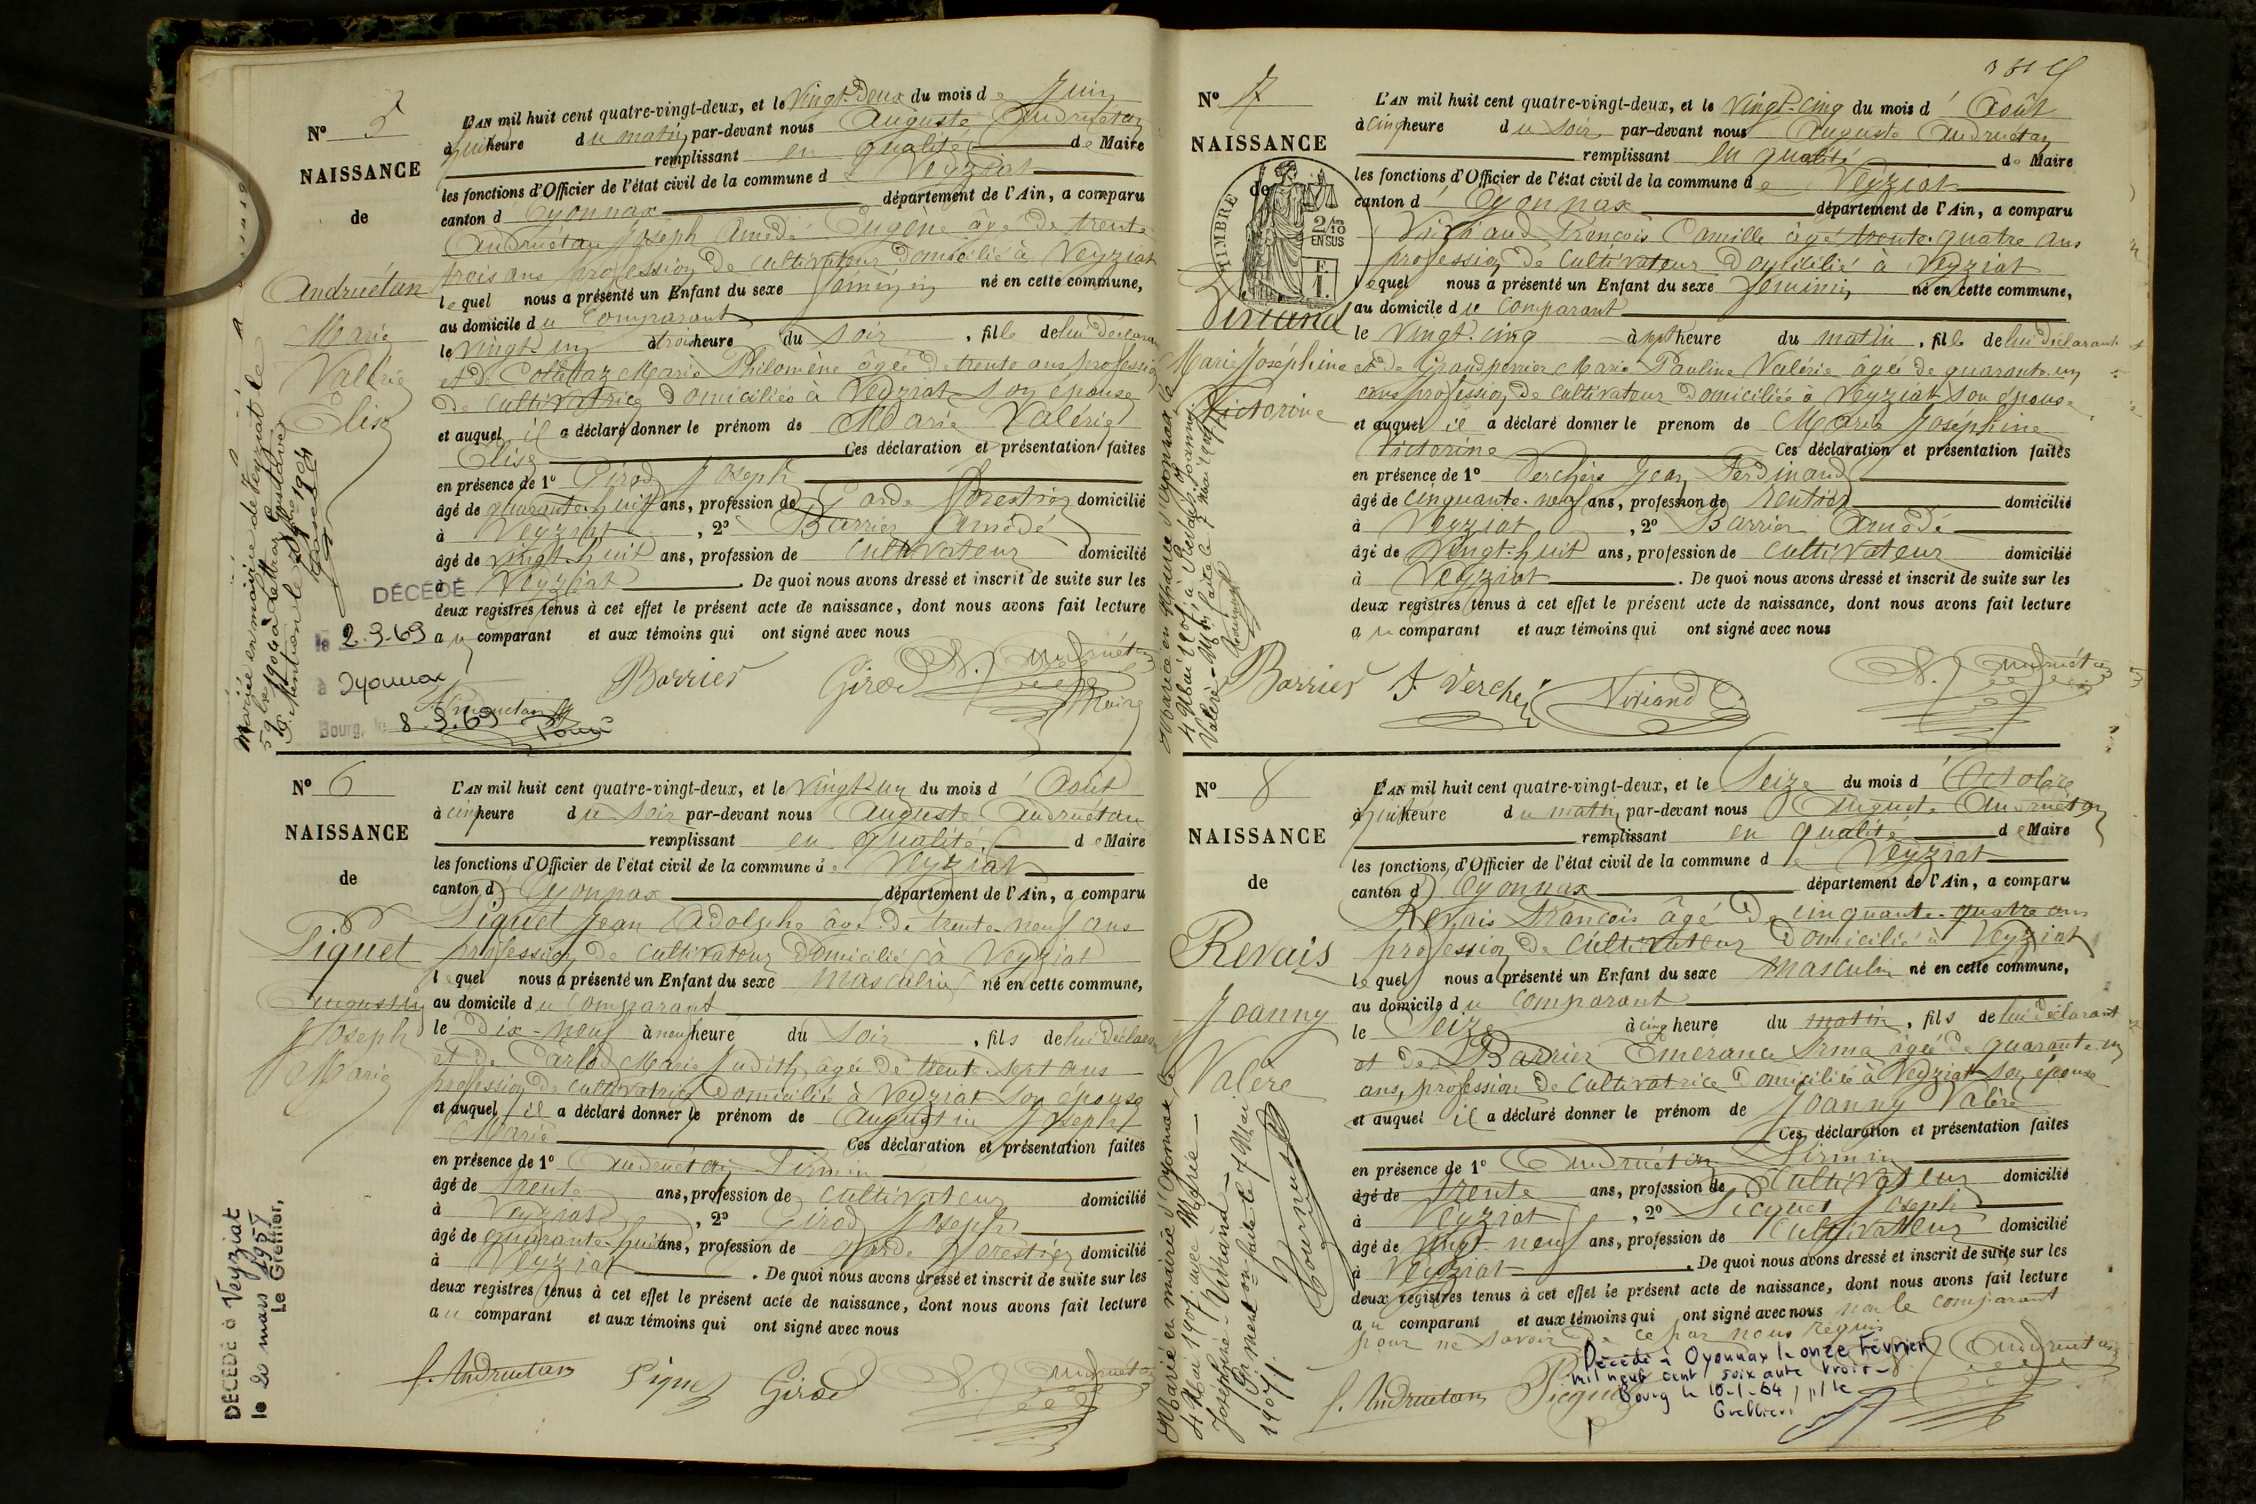 N° 5
NAISSANCE
de
Andruétan
Marie
Valérie
Elise
L'AN mil huit cent quatre-vingt-deux, et le Vingt-Deux du mois de Juin
à huit heure du matin par-devant nous Auguste Andruétan
remplissant en qualité de Maire
les fonctions d'Officier de l'état civil de la commune de Veyziat
canton d'Oyonnax département de l'Ain, a comparu
Andruétan Joseph Amédé Eugène âgé de trente
trois ans profession de cultivateur domicilié à Veyziat
lequel nous a présenté un Enfant du sexe féminin né en cette commune,
au domicile du Comparant
le Vingt un à trois heure du soir, fille de lui déclarant
et de Collétaz Marie Philomène âgée de trente ans profession
de cultivatrice domiciliée à Veyziat son épouse
et auquel il a déclaré donner le prénom de Marie Valérie
Elise Ces déclaration et présentation faites
en présence de 1° Girod Joseph
âgé de quarante-huit ans, profession de Garde forestier domicilié
à Veyziat, 2° Barrier Amédé
âgé de vingt-huit ans, profession de cultivateur domicilié
à Veyziat. De quoi nous avons dressé et inscrit de suite sur les
deux registres tenus à cet effet le présent acte de naissance, dont nous avons fait lecture
au comparant et aux témoins qui ont signé avec nous
Barrier Girod A. Andruétan
Maire
Mariée en mairie de Veyziat le
DÉCÉDÉ
le 2.3.69
à Oyonnax
Bourg, le 8.3.69
N° 6
NAISSANCE
de
Piquet
Augustin
Joseph
Marie
L'AN mil huit cent quatre-vingt-deux, et le Vingt-un du mois d'Août
à cinq heure du soir par-devant nous Auguste Andruétan
remplissant en qualité de Maire
les fonctions d'Officier de l'état civil de la commune de Veyziat
canton d'Oyonnax département de l'Ain, a comparu
Piquet Jean Adolphe âgé de trente-neuf ans
profession de cultivateur domicilié à Veyziat
lequel nous a présenté un Enfant du sexe masculin né en cette commune,
au domicile du comparant
le Dix-neuf à neuf heure du soir, fils de lui déclarant
et de Carlod Marie Judith, âgée de trente-sept ans
profession de cultivatrice domiciliée à Veyziat son épouse
et auquel il a déclaré donner le prénom de Augustin Joseph
Marie Ces déclaration et présentation faites
en présence de 1° Andruétan Firmin
âgé de trente ans, profession de cultivateur domicilié
à Veyziat, 2° Girod Joseph
âgé de quarante-huit ans, profession de garde forestier domicilié
à Veyziat. De quoi nous avons dressé et inscrit de suite sur les
deux registres tenus à cet effet le présent acte de naissance, dont nous avons fait lecture
au comparant et aux témoins qui ont signé avec nous
f. Andruétan Piquet Girod A. Andruétan
DÉCÉDÉ à Veyziat
le 20 mars 1957
Le Greffier,
N° 7
NAISSANCE
de
TIMBRE
2/10
EN SUS
F.
1.
Viviand
Marie Joséphine
Victorine
L'AN mil huit cent quatre-vingt-deux, et le Vingt-cinq du mois d'Août
à cinq heure du soir par-devant nous Auguste Andruétan
remplissant en qualité de Maire
les fonctions d'Officier de l'état civil de la commune de Veyziat
canton d'Oyonnax département de l'Ain, a comparu
Viviand François Camille âgé trente-quatre ans
profession de cultivateur Domicilié à Veyziat
lequel nous a présenté un Enfant du sexe féminin né en cette commune,
au domicile du comparant
le Vingt-cinq à sept heure du matin, fille de lui déclarant
et de Grandperrier Marie Pauline Valérie âgée de quarante-un
ans profession de cultivateur domiciliée à Veyziat son épouse
et auquel il a déclaré donner le prenom de Marie Joséphine
Victorine Ces déclaration et présentation faites
en présence de 1° Verchère Jean Ferdinand
âgé de cinquante-neuf ans, profession de rentier domicilié
à Veyziat, 2° Barrier Amédé
âgé de Vingt-huit ans, profession de cultivateur domicilié
à Veyziat. De quoi nous avons dressé et inscrit de suite sur les
deux registres tenus à cet effet le présent acte de naissance, dont nous avons fait lecture
au comparant et aux témoins qui ont signé avec nous
Barrier F. Verchère Viviand A. Andruétan
Mariée en Mairie d'Oyonnax le
4 Mai 1907, à Revais Joanny
Valère - Mon faite le 7 Mai 1907
N° 8
NAISSANCE
de
Revais
Joanny
Valère
L'AN mil huit cent quatre-vingt-deux, et le Seize du mois d'Octobre
à huit heure du matin par-devant nous Auguste Andruétan
remplissant en qualité de Maire
les fonctions d'Officier de l'état civil de la commune de Veyziat
canton d'Oyonnax département de l'Ain, a comparu
Revais François âgé de cinquante-quatre ans
profession de cultivateur Domicilié à Veyziat
lequel nous a présenté un Enfant du sexe masculin né en cette commune,
au domicile du comparant
le Seize à cinq heure du matin, fils de lui déclarant
et de Barrier Emérance Irma âgée de quarante-un
ans, profession de cultivatrice Domiciliée à Veyziat son épouse
et auquel il a déclaré donner le prénom de Joanny Valère
Ces déclaration et présentation faites
en présence de 1° Andruétan Firmin
âgé de trente ans, profession de Cultivateur domicilié
à Veyziat, 2° Picquet Joseph
âgé de vingt-neuf ans, profession de Cultivateur domicilié
à Veyziat. De quoi nous avons dressé et inscrit de suite sur les
deux registres tenus à cet effet le présent acte de naissance, dont nous avons fait lecture
au comparant et aux témoins qui ont signé avec nous non le comparant
pour ne savoir de ce par nous requis
f. Andruétan Picquet Andruétan
Décédé à Oyonnax le onze Février
mil neuf cent soixante trois -
Bourg le 10-1-64 p/ le
Greffier
Marié en mairie d'Oyonnax le
4 Mai 1907, avec Marie -
Joséphine - Viviand -
Mention faite le 7 Mai
1907